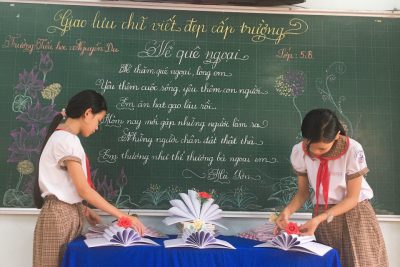 Giao lưu chữ viết đẹp cấp trường
Trường Tiểu học: Nguyễn Du
Lớp: 5.B
Về quê ngoại
Về thăm quê ngoại, lòng em
Yêu thêm cuộc sống, yêu thêm con người.
Em ăn hạt gạo lâu rồi
Hôm nay mới gặp những người làm ra
Những người chân đất thật thà
Em thương như thể thương bà ngoại em.
Hà Sơn